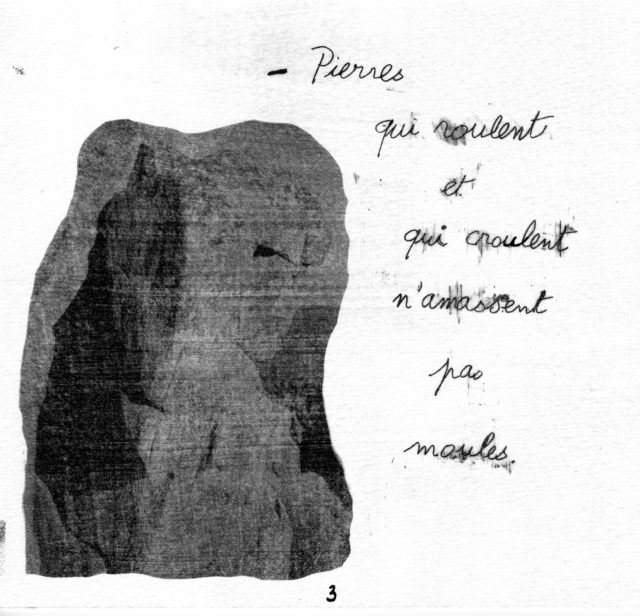 - Pierres
qui roulent
et
qui croulent
n'amassent
pas
moules.
3